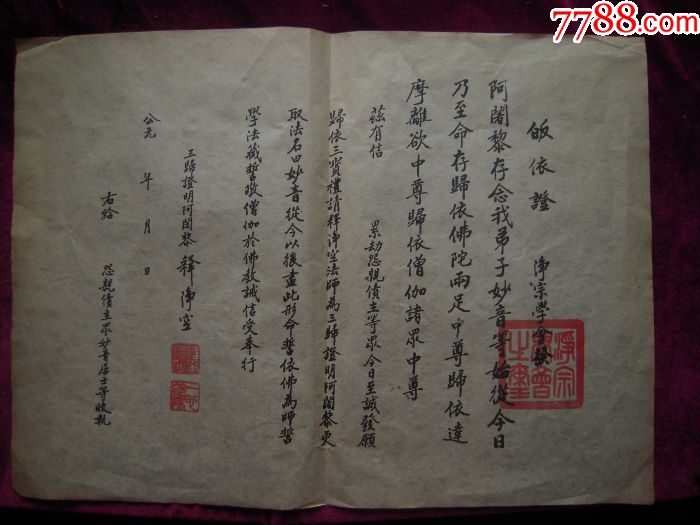 7788.com
皈依證　淨宗學會發
阿闍黎存念我弟子妙音等始從今日
乃至命存歸依佛陀兩足中尊歸依達
摩離欲中尊歸依僧伽諸眾中尊
茲有信　　累劫怨親債主等眾今日至誠發願
歸依三寶禮請釋淨空法師為三歸證明阿闍黎更
取法名曰妙音從今以後盡此形命誓依佛為師誓
學法藏誓敬僧伽於佛教誡信受奉行
三歸證明阿闍黎 釋淨空
公元　年　月　日
右給　怨親債主眾妙音居士等收執
淨宗
學會
之璽